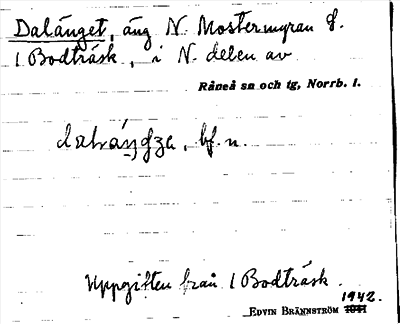 Dalänget, äng N. Mostermyran 8.
1 Bodträsk, i N. delen av
Råneå sn och tg, Norrb. l.
bf. n.
Uppgiften från 1 Bodträsk.
1942.
EDVIN BRÄNNSTRÖM 1941